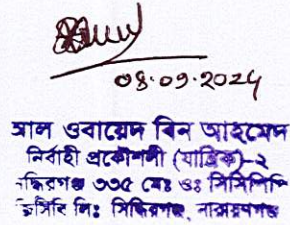 08.09.2024
আল ওবায়েদ বিন আহমেদ
নির্বাহী প্রকৌশলী (যান্ত্রিক)-২
দ্ধিরগঞ্জ ৩৩৫ মেঃ ওঃ সিসিপিপি
জিসিবি লিঃ সিদ্ধিরগঞ্জ, নারায়ণগঞ্জ